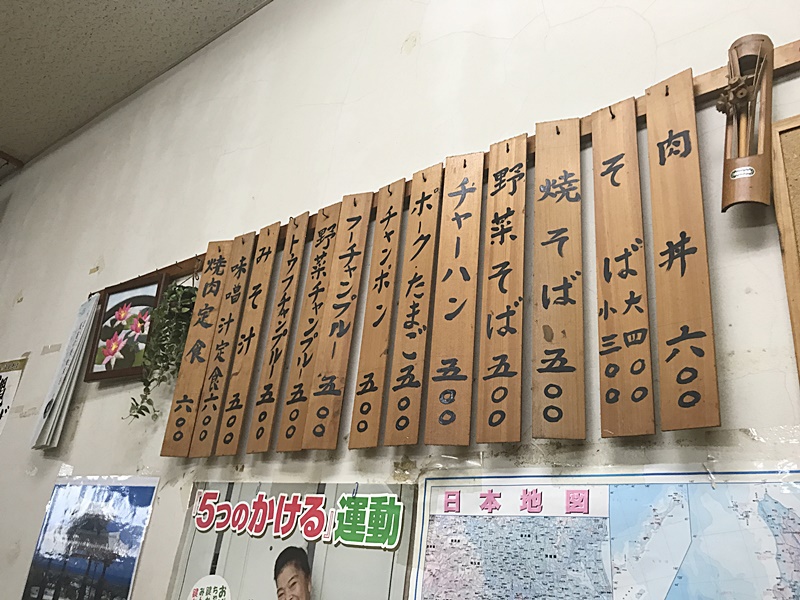 肉丼 六〇〇
そば 大 四〇〇
小 三〇〇
焼そば 五〇〇
野菜そば 五〇〇
チャーハン 五〇〇
ポーク・たまご 五〇〇
チャンポン 五〇〇
フーチャンプルー 五〇〇
野菜チャンプル 五〇〇
トウフチャンプルー 五〇〇
みそ汁 五〇〇
味噌汁定食 六〇〇
焼肉定食 六〇〇
『5つのかける』運動
日本地図